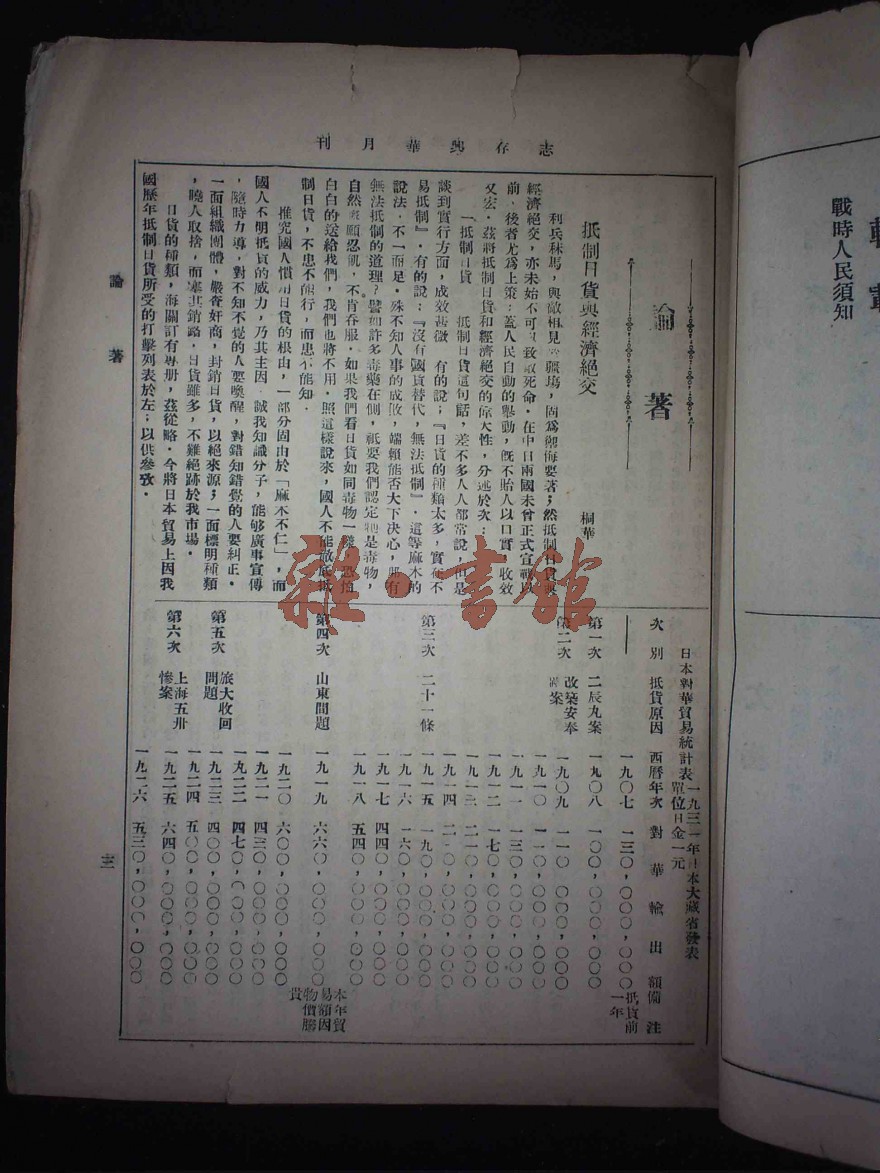 戰時人民須知
志存興華月刊
論著
抵制日貨與經濟絕交
桐華
利兵秣馬，與敵相見於疆場，固爲禦侮要著；然抵制日貨與
經濟絕交，亦未始不可以致敵死命。在中日兩國未曾正式宣戰以
前，後者尤爲上策：蓋人民自動的舉動，旣不貽人以口實，收效
又宏。茲將抵制日貨和經濟絕交的偉大性，分述於次：
一抵制日貨　抵制日貨這句話，差不多人人都常說，但是
談到實行方面，成效甚微　有的說：『日貨的種類太多，實在不
易抵制』。有的說：『沒有國貨替代，無法抵制』。這等麻木的
說法，不一而足。殊不知人事的成敗，端賴能否大下决心，那有
無法抵制的道理？譬如許多毒藥在側，祇要我們認定牠是毒物，
自然朵頤忍飢，不肯吞服。如果我們看日貨如同毒物一樣，恐怕
白白的送給我們，我們也將不用。照這樣說來，國人不能徹底抵
制日貨，不患不能行，而患不能知。
推究國人慣用日貨的根由，一部分固由於「麻木不仁」，而
國人不明抵貨的威力，乃其主因　誠我知識分子，能够廣事宣傳
，隨時力導，對不知不覺的人要喚醒，對錯知錯覺的人要糾正。
一面組織團體，嚴查奸商，封銷日貨，以絕來源；一面標明種類
，曉人取捨，而塞其銷路，日貨雖多，不難絕跡於我市場。
日貨的種類，海關訂有專册，茲從略。今將日本貿易上因我
國歷年抵制日貨所受的打擊列表於左：以供參攷。
日本對華貿易統計表 一九三一年日本大藏省發表 單位日金一元
次別　抵貨原因　西曆年次　對華輸出額　備注
一九〇七　一三〇，〇〇〇，〇〇〇　抵貨前一年
第一次　二辰丸案　一九〇八　一〇〇，〇〇〇，〇〇〇
第二次　改築安奉路案　一九〇九　一一〇，〇〇〇，〇〇〇
一九一〇　一一〇，〇〇〇，〇〇〇
一九一一　一三〇，〇〇〇，〇〇〇
一九一二　一七〇，〇〇〇，〇〇〇
一九一三　二一〇，〇〇〇，〇〇〇
一九一四　二一〇，〇〇〇，〇〇〇
第三次　二十一條　一九一五　一九〇，〇〇〇，〇〇〇
一九一六　一六〇，〇〇〇，〇〇〇
一九一七　四四〇，〇〇〇，〇〇〇
一九一八　五四〇，〇〇〇，〇〇〇
第四次　山東問題　一九一九　六六〇，〇〇〇，〇〇〇　本年貿易額因物價騰貴
一九二〇　六〇〇，〇〇〇，〇〇〇
一九二一　四三〇，〇〇〇，〇〇〇
一九二二　四七〇，〇〇〇，〇〇〇
第五次　旅大收回問題　一九二三　四〇〇，〇〇〇，〇〇〇
一九二四　五〇〇，〇〇〇，〇〇〇
第六次　上海五卅慘案　一九二五　六四〇，〇〇〇，〇〇〇
一九二六　五三〇，〇〇〇，〇〇〇
論著
三
雜·書館